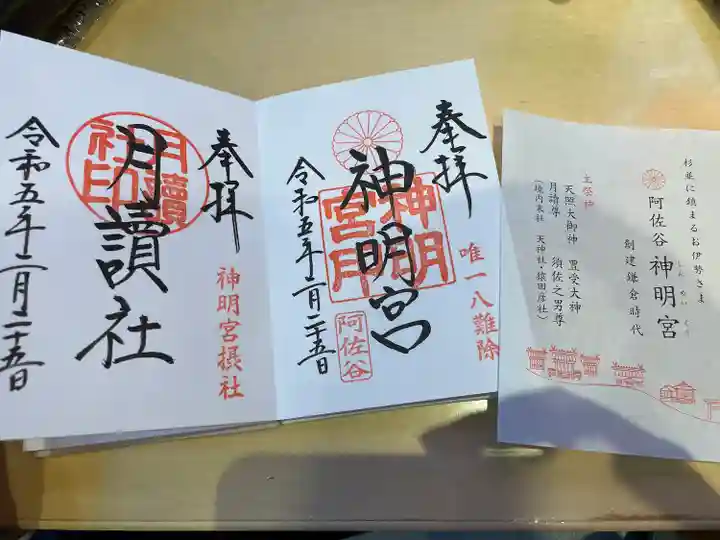 奉拝
唯一八難除
神明宮
神明
宮印
阿佐谷
令和五年二月二十五日
奉拝
神明宮摂社
月讀社
月讀
社印
令和五年二月二十五日
杉並に鎮まるお伊勢さま
阿佐谷 神明宮
しん めい ぐう
創建鎌倉時代
主祭神
天照大御神 豊受大神
月讀尊 須佐之男尊
(境内末社 天神社・猿田彦社)